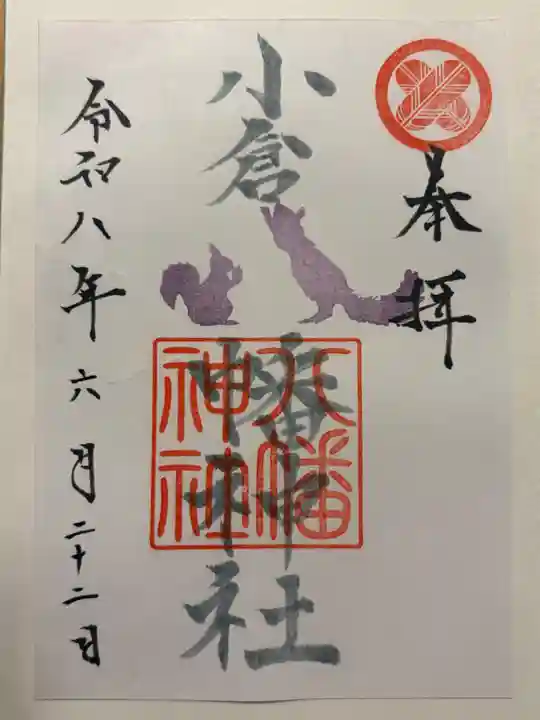 奉拝
小倉八幡神社
八幡神社
令和八年六月二十二日